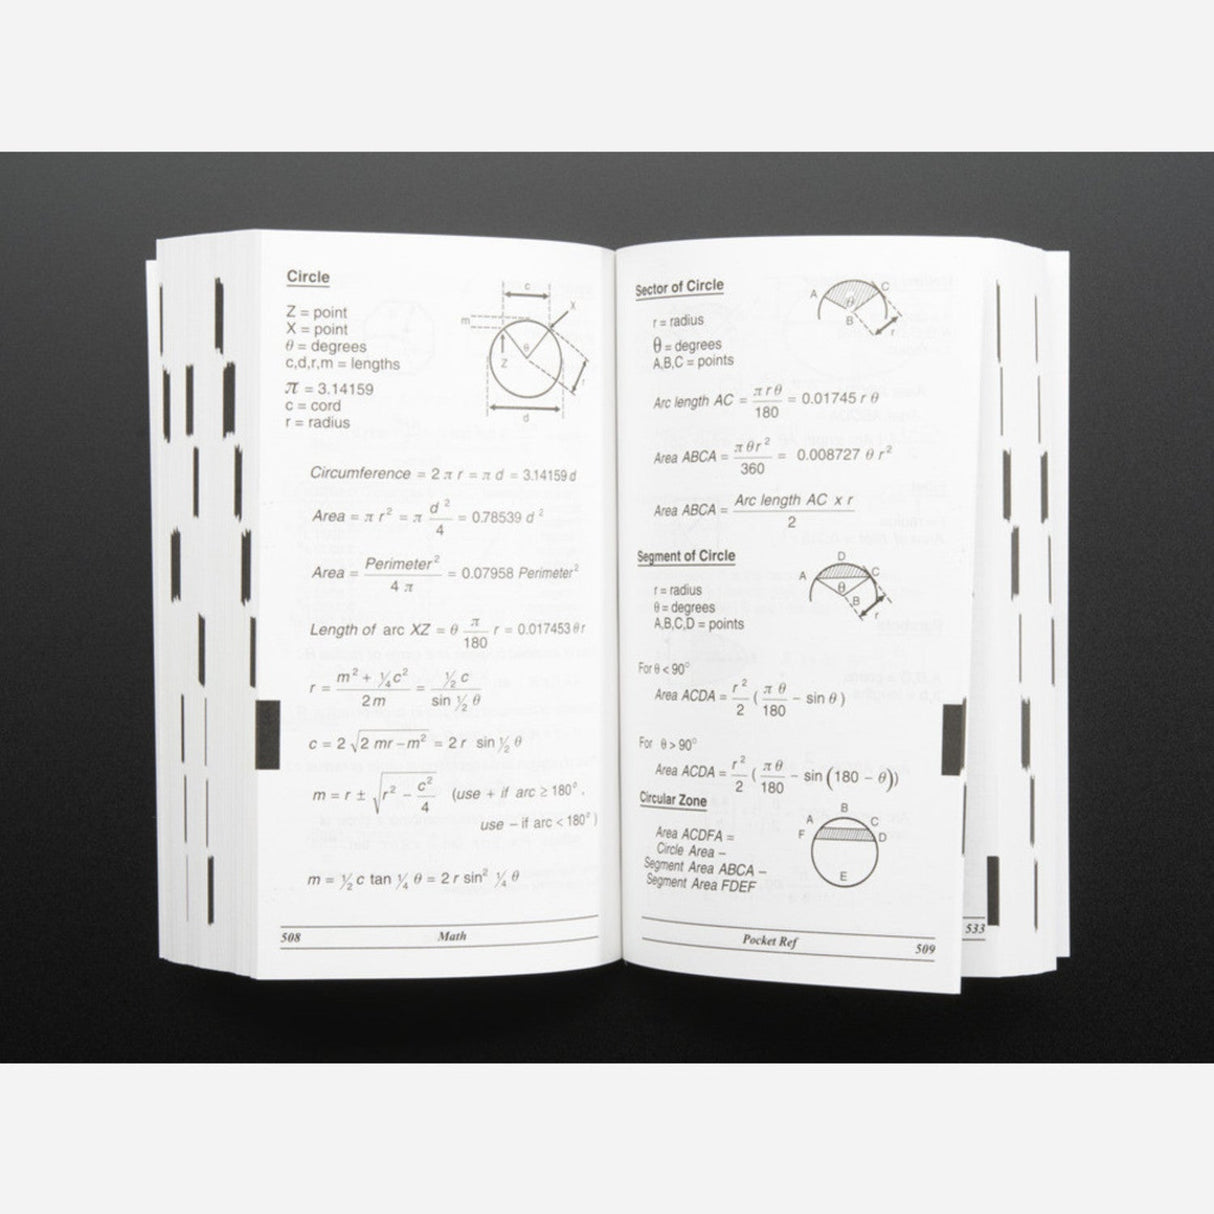 Circle
Z = point
X = point
θ = degrees
c,d,r,m = lengths
π = 3.14159
c = cord
r = radius
c
X
m
θ
Z
r
d
Circumference = 2 π r = π d = 3.14159 d
Area = π r² = π d²/4 = 0.78539 d²
Area = Perimeter²/4 π = 0.07958 Perimeter²
Length of arc XZ = θ π/180 r = 0.017453 θ r
r = (m² + ¼c²)/2m = ½ c/sin ½ θ
c = 2 √(2 mr – m²) = 2 r sin ½ θ
m = r ± √(r² – c²/4) (use + if arc ≥ 180°,
use – if arc < 180°)
m = ½ c tan ¼ θ = 2 r sin² ¼ θ
508 Math
Sector of Circle
r = radius
θ = degrees
A,B,C = points
A
C
θ
B
r
Arc length AC = π r θ/180 = 0.01745 r θ
Area ABCA = π θ r²/360 = 0.008727 θ r²
Area ABCA = Arc length AC x r/2
Segment of Circle
r = radius
θ = degrees
A,B,C,D = points
D
A
C
θ
B
r
For θ < 90°
Area ACDA = r²/2 (π θ/180 – sin θ)
For θ > 90°
Area ACDA = r²/2 (π θ/180 – sin (180 – θ))
Circular Zone
Area ACDFA =
Circle Area –
Segment Area ABCA –
Segment Area FDEF
B
A
C
F
D
E
Pocket Ref 509
533